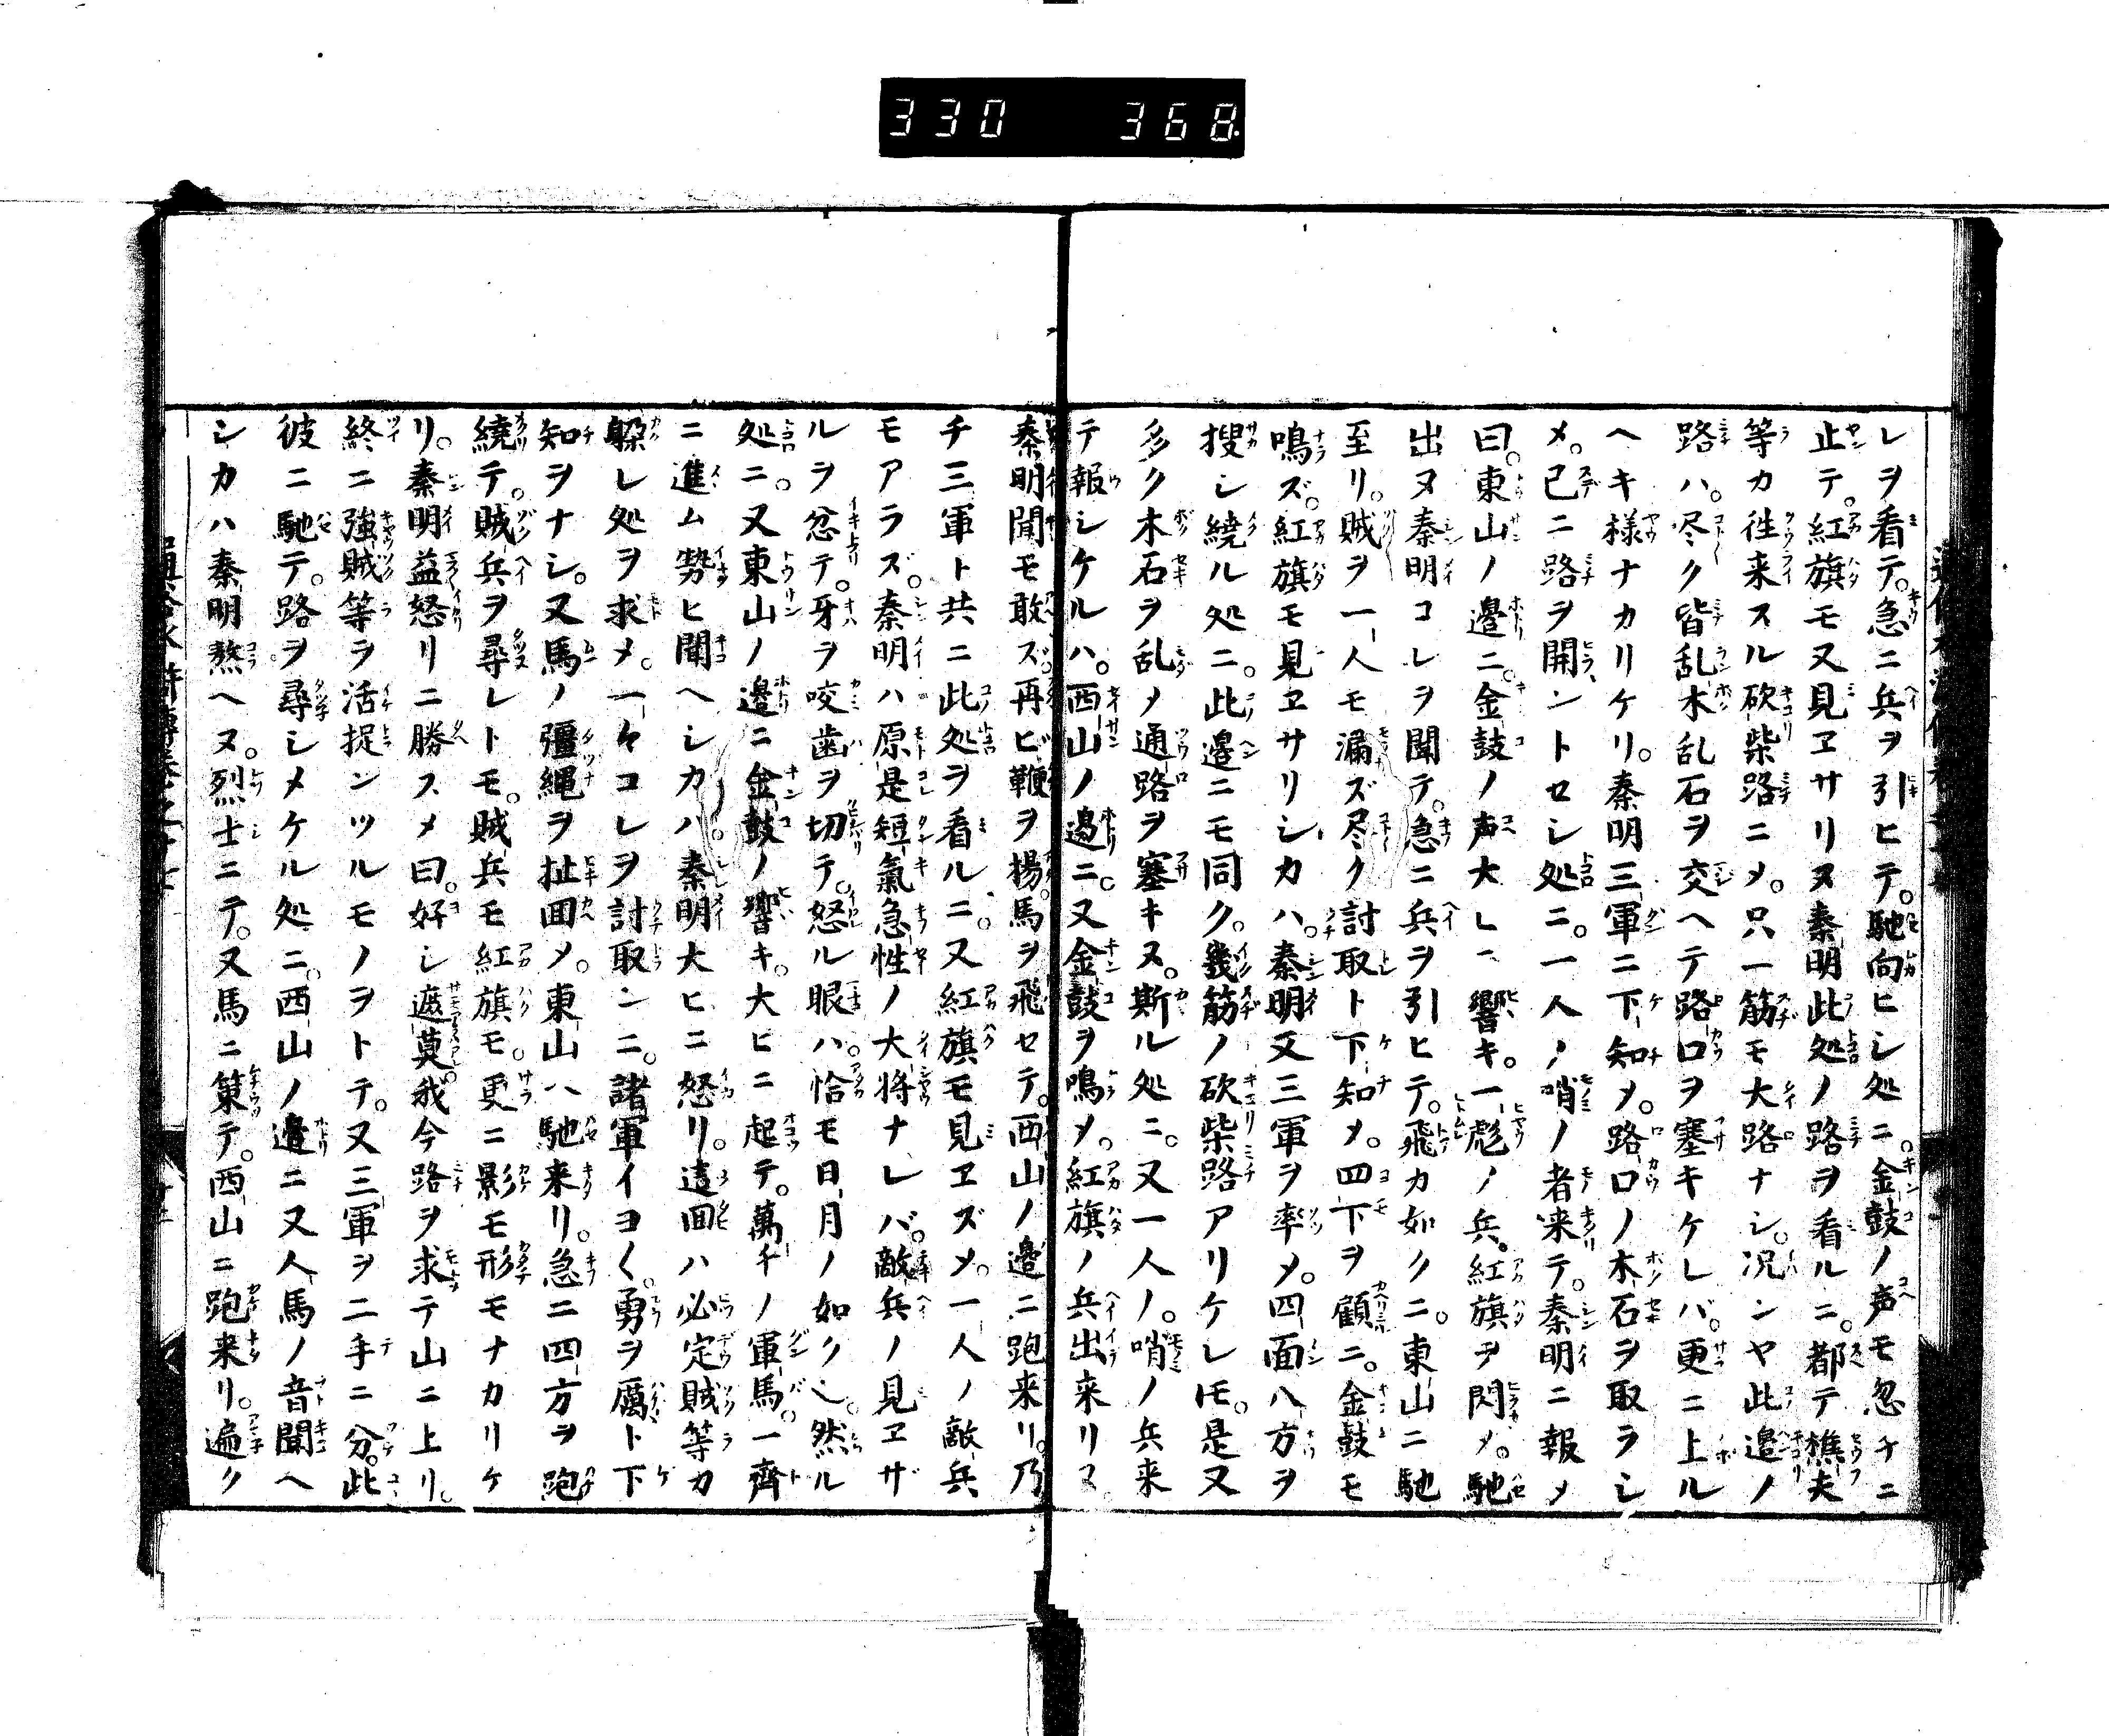 330 368.
レヲ看テ。急ニ兵ヲ引ヒテ。馳向ヒシ処ニ。金鼓ノ声モ忽チニ
止テ。紅旗モ又見ヱサリヌ秦明此処ノ路ヲ看ルニ。都テ樵夫
等カ徃来スル砍柴路ニメ。只一筋モ大路ナシ。況ンヤ此邉ノ
路ハ。尽ク皆乱木乱石ヲ交ヘテ路口ヲ塞キケレバ。更ニ上ル
ヘキ様ナカリケリ。秦明三軍ニ下知メ。路口ノ木石ヲ取ラシ
メ。已ニ路ヲ開ントセシ処ニ。一人ノ哨ノ者来テ。秦明ニ報メ
曰。東山ノ邉ニ。金鼓ノ声大ヒニ響キ。一彪ノ兵。紅旗ヲ閃メ。馳
出ヌ秦明コレヲ聞テ。急ニ兵ヲ引ヒテ。飛カ如クニ。東山ニ馳
至リ。賊ヲ一人モ漏ズ尽ク討取ト下知メ。四下ヲ顧ニ。金鼓モ
鳴ズ。紅旗モ見ヱサリシカハ。秦明又三軍ヲ率メ。四面八方ヲ
搜シ繞ル処ニ。此邉ニモ同ク。幾筋ノ砍柴路アリケレ𪜈。是又
多ク木石ヲ乱メ通路ヲ塞キヌ。斯ル処ニ。又一人ノ。哨ノ兵来
テ報シケルハ。西山ノ邉ニ。又金鼓ヲ鳴メ。紅旗ノ兵出来リヌ。
秦明聞モ敢ズ。再ビ鞭ヲ揚。馬ヲ飛セテ。西山ノ邉ニ跑来リ。乃
チ三軍ト共ニ此処ヲ看ルニ。又紅旗モ見ヱズメ。一人ノ敵兵
モアラズ。秦明ハ原是短氣急性ノ大将ナレバ。敵兵ノ見ヱザ
ルヲ忿テ。牙ヲ咬歯ヲ切テ。怒ル眼ハ。恰モ日月ノ如ク。然ル
処ニ。又東山ノ邉ニ金鼓ノ響キ。大ヒニ起テ。萬千ノ軍馬。一齊
ニ進ム勢ヒ聞ヘシカハ。秦明大ヒニ怒リ。這囬ハ必定賊等カ
躱レ処ヲ求メ。一々コレヲ討取ンニ。諸軍イヨ〱。勇ヲ厲ト下
知ヲナシ。又馬ノ彊縄ヲ扯囬メ。東山ハ馳来リ。急ニ四方ヲ跑
繞テ。賊兵ヲ尋レトモ。賊兵モ紅旗モ。更ニ影モ形モナカリケ
リ。秦明益怒リニ勝スメ曰。好シ遮莫我今路ヲ求テ山ニ上リ。
終ニ強賊等ヲ活捉ンツルモノヲトテ。又三軍ヲ二手ニ分。此
彼ニ馳テ。路ヲ尋シメケル処ニ。西山ノ邉ニ又人馬ノ音聞ヘ
シカハ秦明熬ヘヌ。烈士ニテ。又馬ニ策テ。西山ニ跑来リ。遍ク